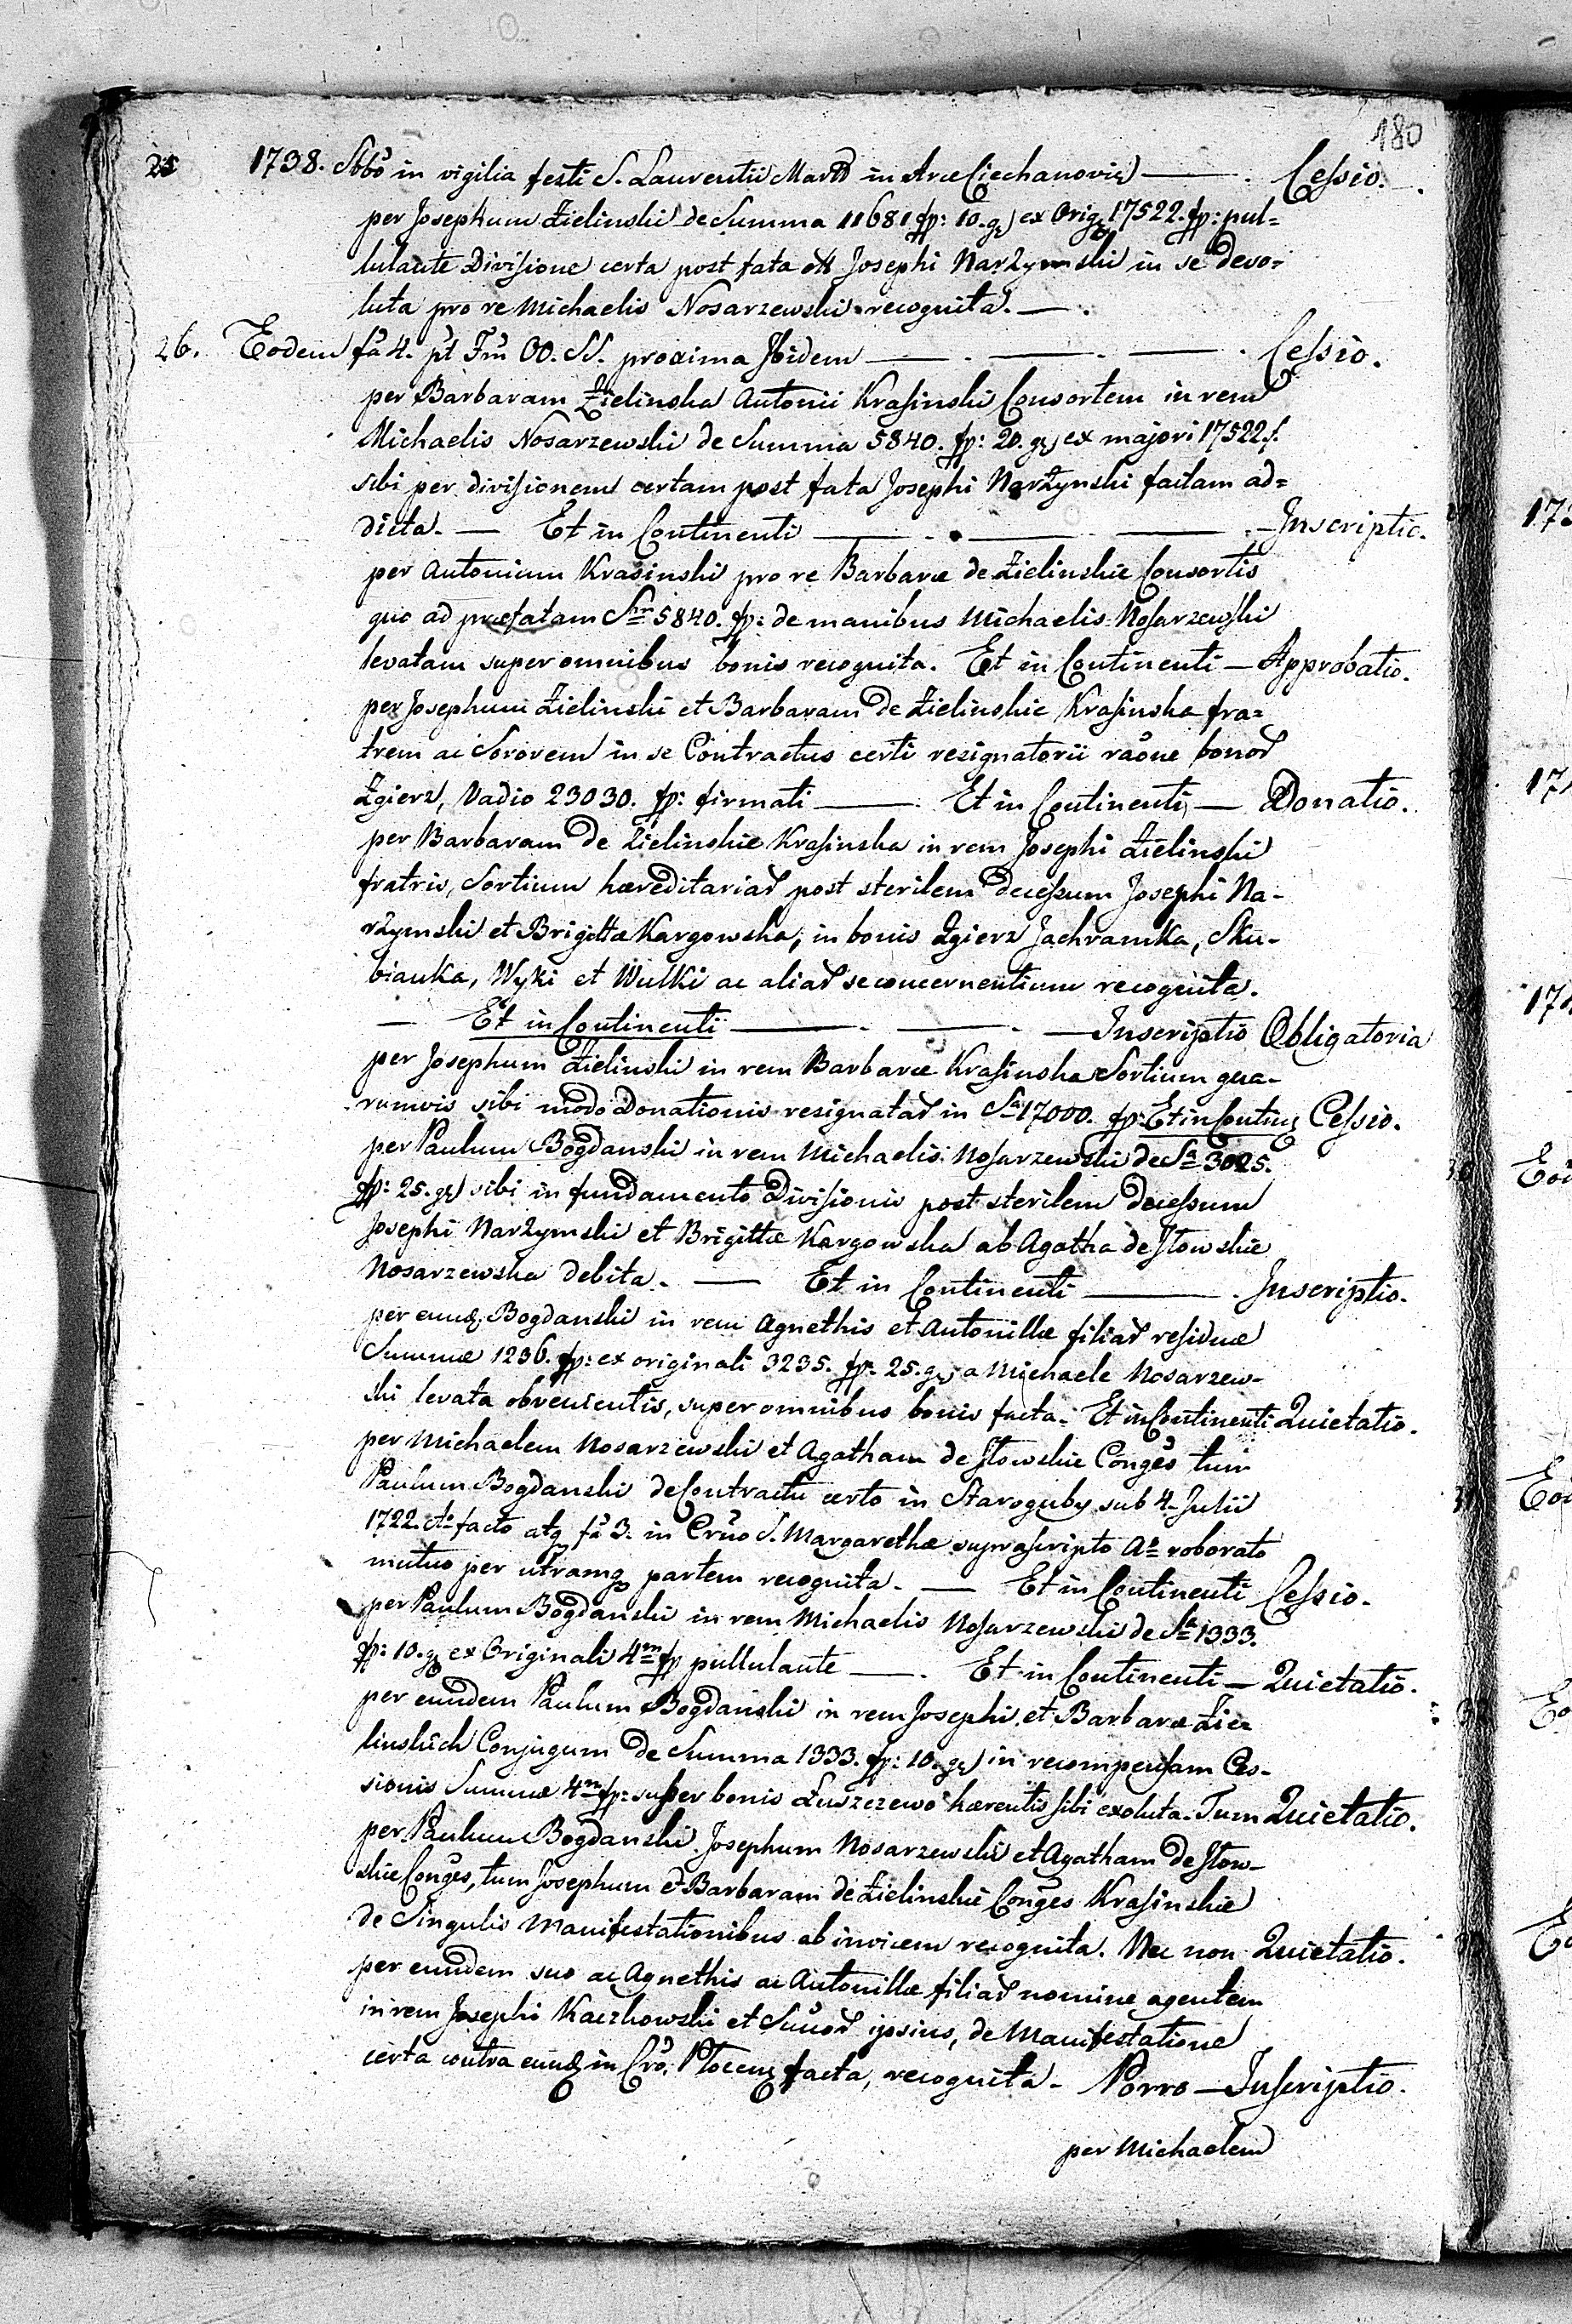 180
25 1738. Sbbo in vigilia festi S. Laurentii Mart in Arce Ciechanovi — . Cessio.
per Josephum Zielinski de Summa 11681 fp: 10. g ex Orig 17522. fp: pul=
lulante Divisione certa post fata olt Josephi Narzymski in se devo=
luta pro re Michaelis Nosarzewski recognita. — .
26. Eodem fa 4. pt Fm OO. SS. proxima Ibidem — . — . — . Cessio.
per Barbaram Zielinska Antonii Krasinski Consortem in rem
Michaelis Nosarzewski de Summa 5840. fp: 20. g ex majori 17522 f.
sibi per divisionem certam post fata Josephi Narzynski factam ad=
dicta. — Et in Continenti — . — . — . — Inscriptio.
per Antonium Krasinski pro re Barbaræ de Zielinskie Consortis
quo ad præfatam Sm 5840. fp: de manibus Michaelis Nosarzewski
levatam super omnibus bonis recognita. Et in Continenti — Approbatio.
per Josephum Zielinski et Barbaram de Zielinskie Krasinska fra=
trem ac Sororem in se Contractus certi resignatorii raone bonor
Zgierz, Vadio 23030. fp: firmati — . Et in Continenti — Donatio.
per Barbaram de Zielinskie Krasinska in rem Josephi Zielinski
fratris, Sortium hæreditariar post sterilem decessum Josephi Na-
rzymski et Brigittæ Kargowska, in bonis Zgierz Jachranka, Sku-
bianka, Wyki et Wulki ac aliar se concernentium recognita.
— Et in Continenti — . — . — Inscriptio Obligatoria
per Josephum Zielinski in rem Barbaræ Krasinska Sortium qua-
rumvis sibi modo Donationis resignatar in Sa 17000. fp: Et in Contin Cessio.
per Paulum Bogdanski in rem Michaelis Nosarzewski de Sa 3025.
fp: 25. g sibi in fundamento Divisionis post sterilem decessum
Josephi Narzymski et Brigittæ Kargowska ab Agatha de Stowskie
Nosarzewska debita. — Et in Continenti — . Inscriptio.
per eund Bogdanski in rem Agnethis et Antonillæ filiar residuæ
Summæ 1236. fp: ex originali 3235. fp. 25. g a Michaele Nosarzew-
ski levata obvenientis, super omnibus bonis facta. Et in Continenti Quietatio.
per Michaelem Nosarzewski et Agatham de Stowskie Conges tum
Paulum Bogdanski de Contractu certo in Staroguby sub 4. Julii
1722. Ao facto atq fa 3. in Crtno S. Margarethæ suprascripto Ao roborato
mutuo per utramq partem recognita. — Et in Continenti Cessio.
per Paulum Bogdanski in rem Michaelis Nosarzewski de Sa 1333.
fp: 10. g ex Originali 4m fp pullulante — . Et in Continenti — Quietatio.
per eundem Paulum Bogdanski in rem Josephi et Barbaræ Zie=
linskich Conjugum de Summa 1333. fp: 10. g in recompensam Ces-
sionis Summæ 4m fp: super bonis Łuszczewo hærentis sibi exoluta. Tum Quietatio.
per Paulum Bogdanski. Josephum Nosarzewski et Agatham de Stow-
skie Conges, tum Josephum et Barbaram de Zielinskie Conges Krasinskie
de Singulis Manifestationibus ab invicem recognita. Nec non Quietatio.
per eundem suo ac Agnethis ac Antonillæ filiar nomine agentem
in rem Josephi Kaczkowski et Suor ipsius, de Manifestatione
certa contra eund in Cro. Plocen facta, recognita. Porro — Inscriptio.
per Michaelem